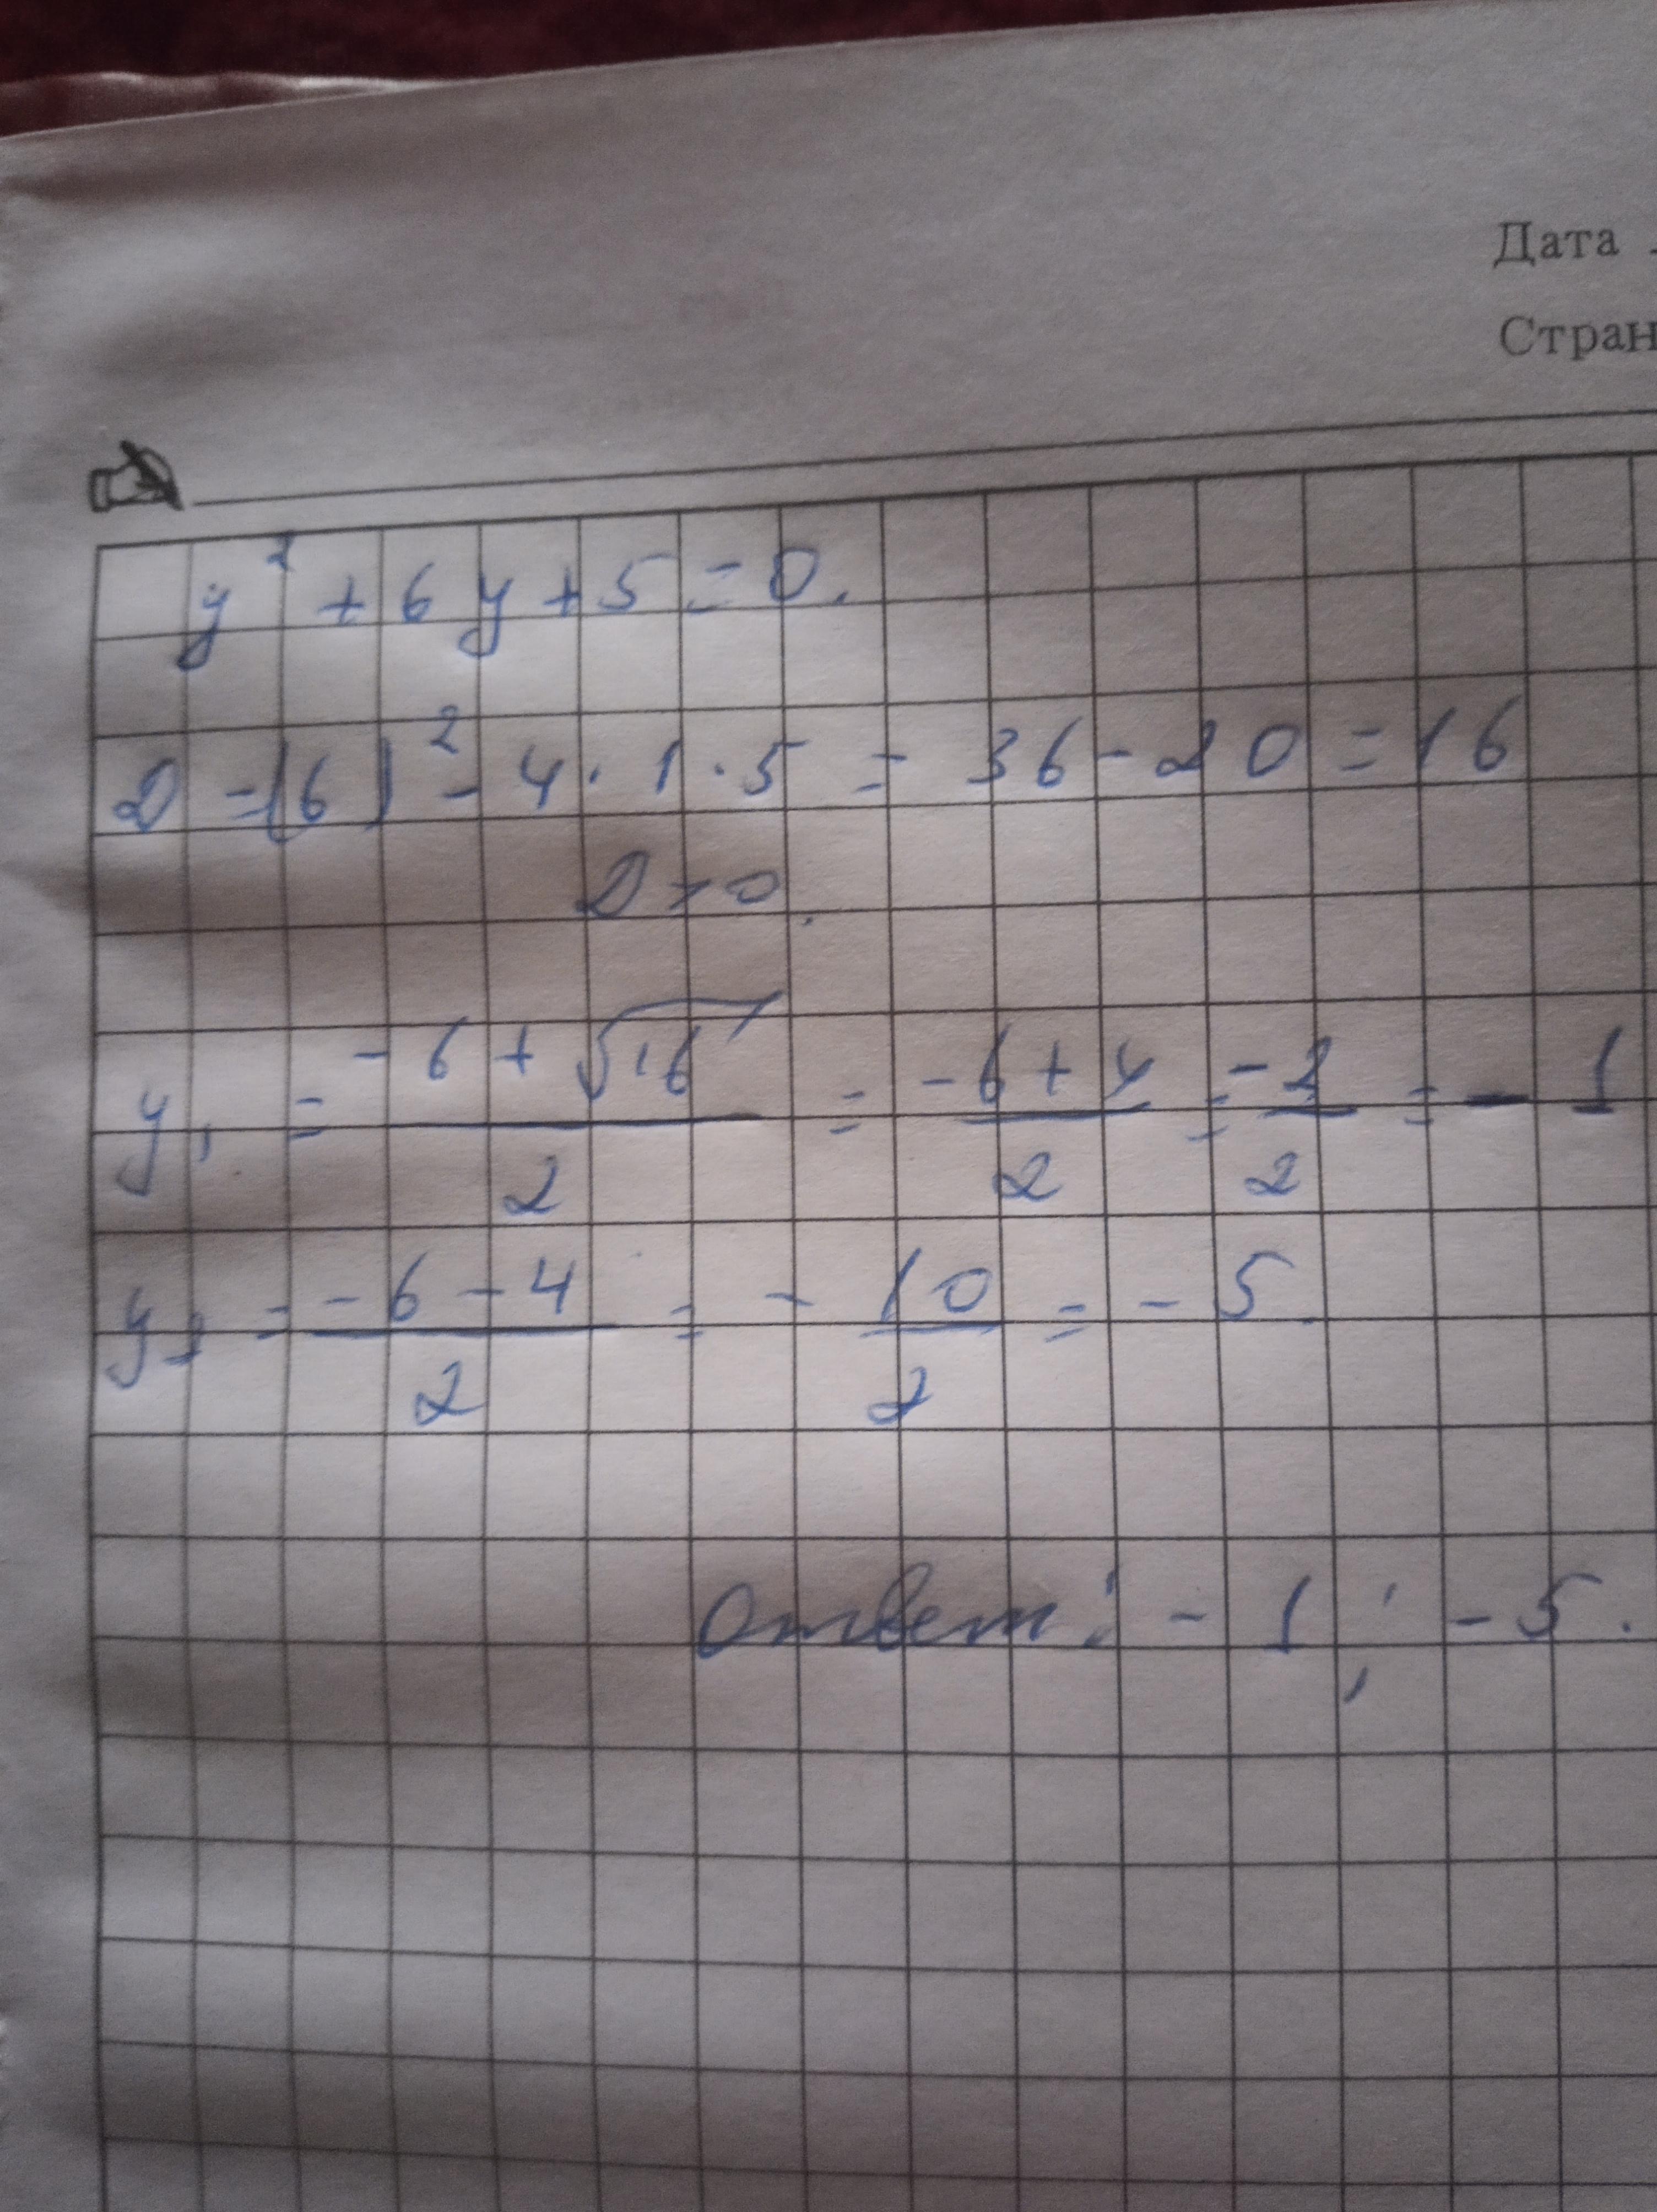 Дата
Стран
y² + 6y + 5 = 0.
D = (6)² - 4 · 1 · 5 = 36 - 20 = 16
D > 0.
y₁ = (-6 + √16)/2 = (-6 + 4)/2 = -2/2 = - 1
y₂ = (-6 - 4)/2 = - 10/2 = - 5.
Ответ: - 1 ; - 5.